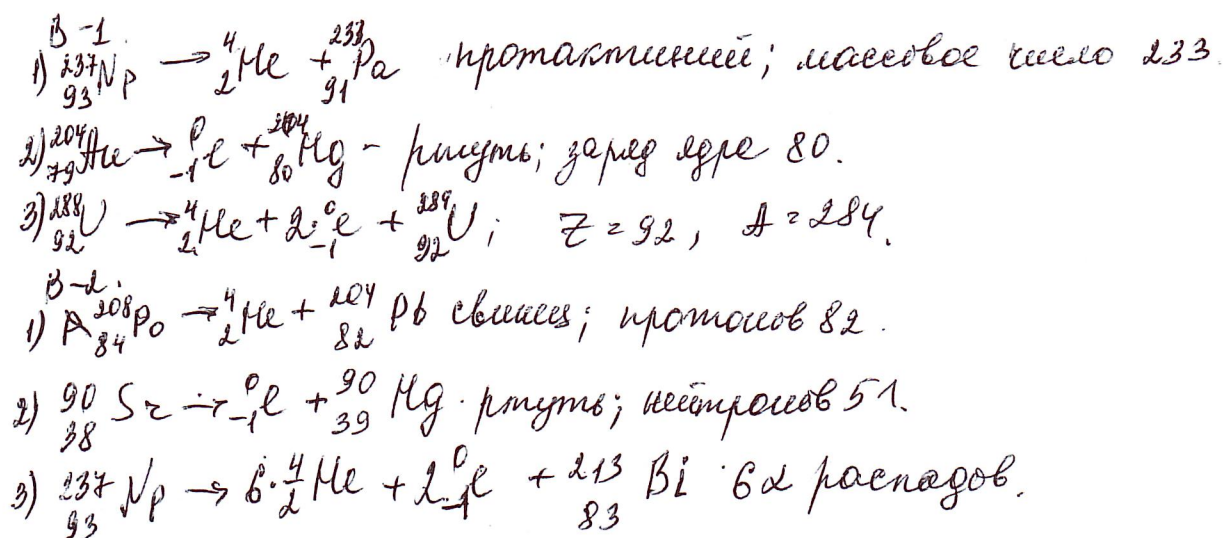 В-1.
1) ²³⁷₉₃Np → ⁴₂He + ²³³₉₁Pa протактиний; массовое число 233.
2) ²⁰⁴₇₉Au → ⁰₋₁e + ²⁰⁴₈₀Hg - ртуть; заряд ядре 80.
3) ²⁸⁸₉₂U → ⁴₂He + 2·⁰₋₁e + ²⁸⁴₉₂U; Z = 92, A = 284.
В-2.
1) ²⁰⁸₈₄Po → ⁴₂He + ²⁰⁴₈₂Pb свинец; протонов 82.
2) ⁹⁰₃₈Sr → ⁰₋₁e + ⁹⁰₃₉Hg · ртуть; нейтронов 51.
3) ²³⁷₉₃Np → 6·⁴₂He + 2·⁰₋₁e + ²¹³₈₃Bi · 6α распадов.